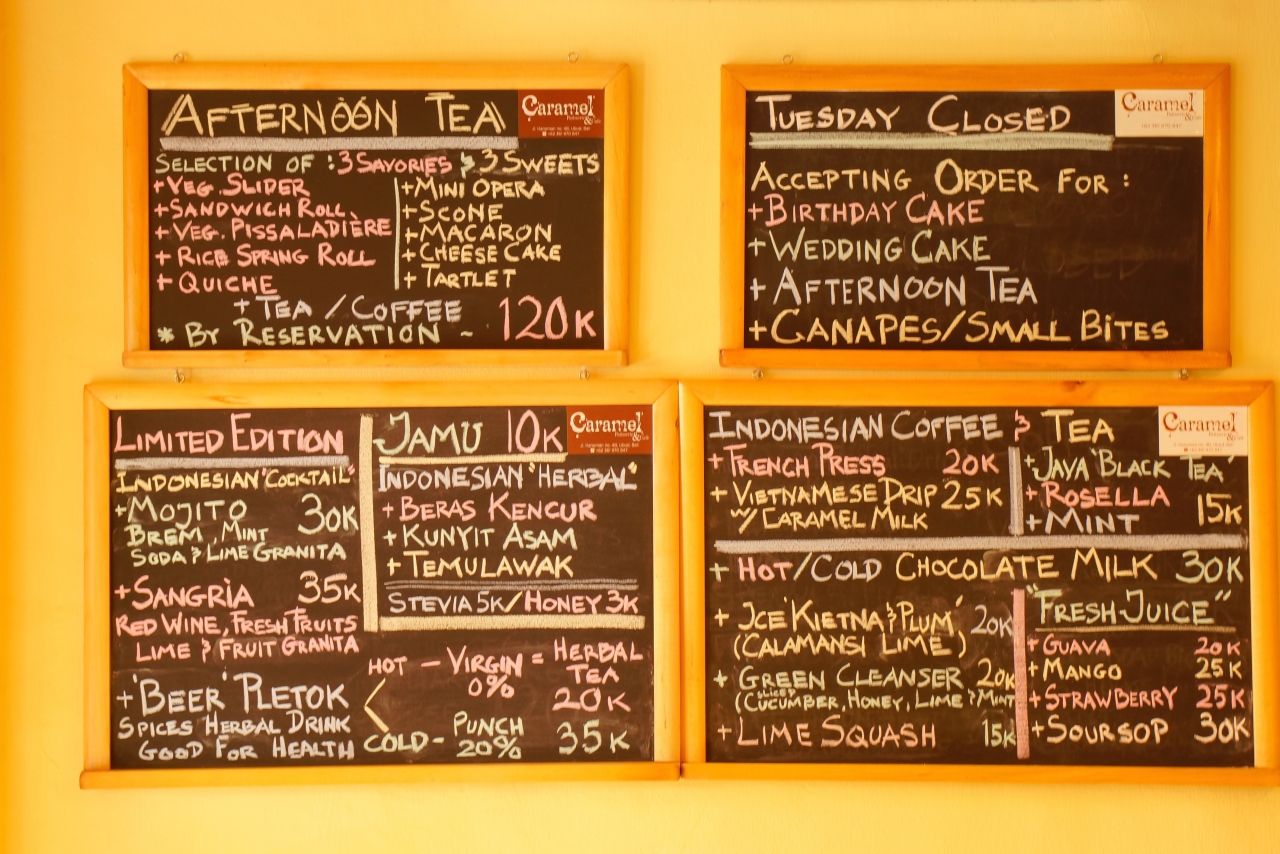 AFTERNÒÓN TEA
Caramel
Patisserie
& Cafe
SELECTION OF : 3 SAVORIES & 3 SWEETS
+ VEG. SLIDER
+ SANDWICH ROLL
+ VEG. PISSALADIÈRE
+ RICE SPRING ROLL
+ QUICHE
+ MINI OPERA
+ SCONE
+ MACARON
+ CHEESE CAKE
+ TARTLET
+ TEA / COFFEE
* BY RESERVATION ~ 120K
TUESDAY CLOSED
Caramel
ACCEPTING ORDER FOR :
+ BIRTHDAY CAKE
+ WEDDING CAKE
+ AFTERNOON TEA
+ CANAPES/SMALL BITES
LIMITED EDITION
INDONESIAN "COCKTAIL"
+ MOJITO 30K
BREM, MINT
SODA & LIME GRANITA
+ SANGRÌA 35K
RED WINE, FRESH FRUITS
LIME & FRUIT GRANITA
+ 'BEER' PLETOK
SPICES HERBAL DRINK
GOOD FOR HEALTH
HOT - VIRGIN = HERBAL
0% TEA
20K
COLD - PUNCH
20% 35K
JAMU 10K
Caramel
INDONESIAN "HERBAL"
+ BERAS KENCUR
+ KUNYIT ASAM
+ TEMULAWAK
STEVIA 5K / HONEY 3K
INDONESIAN COFFEE & TEA
Caramel
+ FRENCH PRESS 20K
+ VIETNAMESE DRIP 25K
W/ CARAMEL MILK
+ JAVA "BLACK TEA"
+ ROSELLA
+ MINT 15K
+ HOT/COLD CHOCOLATE MILK 30K
+ ICE 'KIETNA & PLUM' 20K
(CALAMANSI LIME)
+ GREEN CLEANSER 20K
(SLICED CUCUMBER, HONEY, LIME & MINT
+ LIME SQUASH 15K
"FRESH JUICE"
+ GUAVA 20K
+ MANGO 25K
+ STRAWBERRY 25K
+ SOURSOP 30K